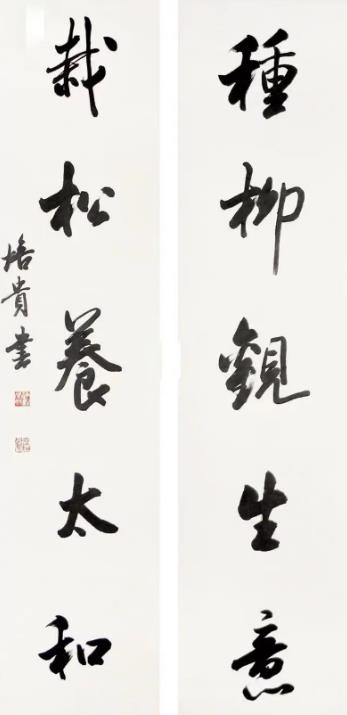 種柳觀生意
栽松養太和
培貴書